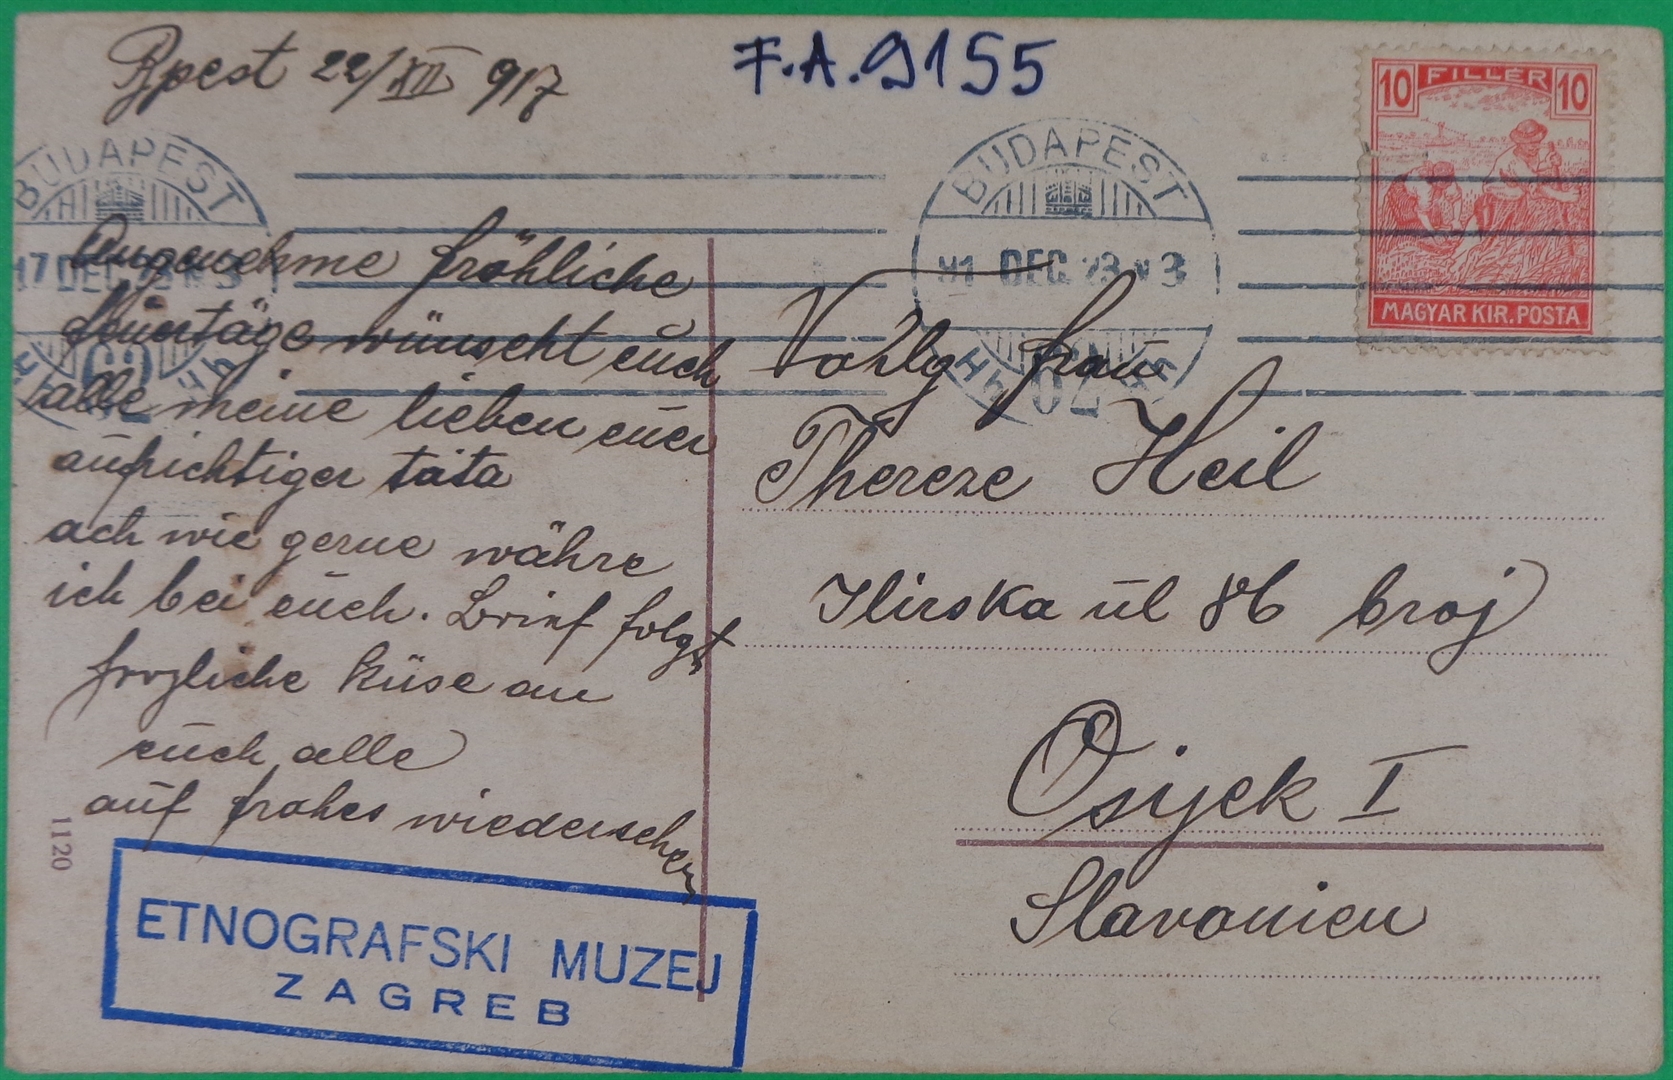 Bpest 22/XII 917
F.A.9155
10 FILLÉR 10
MAGYAR KIR. POSTA
BUDAPEST
17 DEC 23
62
BUDAPEST
DEC 23
62
Angenehme fröhliche
feuertäge wünscht euch
alle meine lieben euer
aufrichtiger tata
ach wie gerne währe
ich bei euch. Brief folgt
herzliche Küse an
euch alle
auf frohes wiedersehen
Frau
Thereze Heil
Ilirska ul 86 broj
Osijek I
Slavonien
1120
ETNOGRAFSKI MUZEJ
ZAGREB